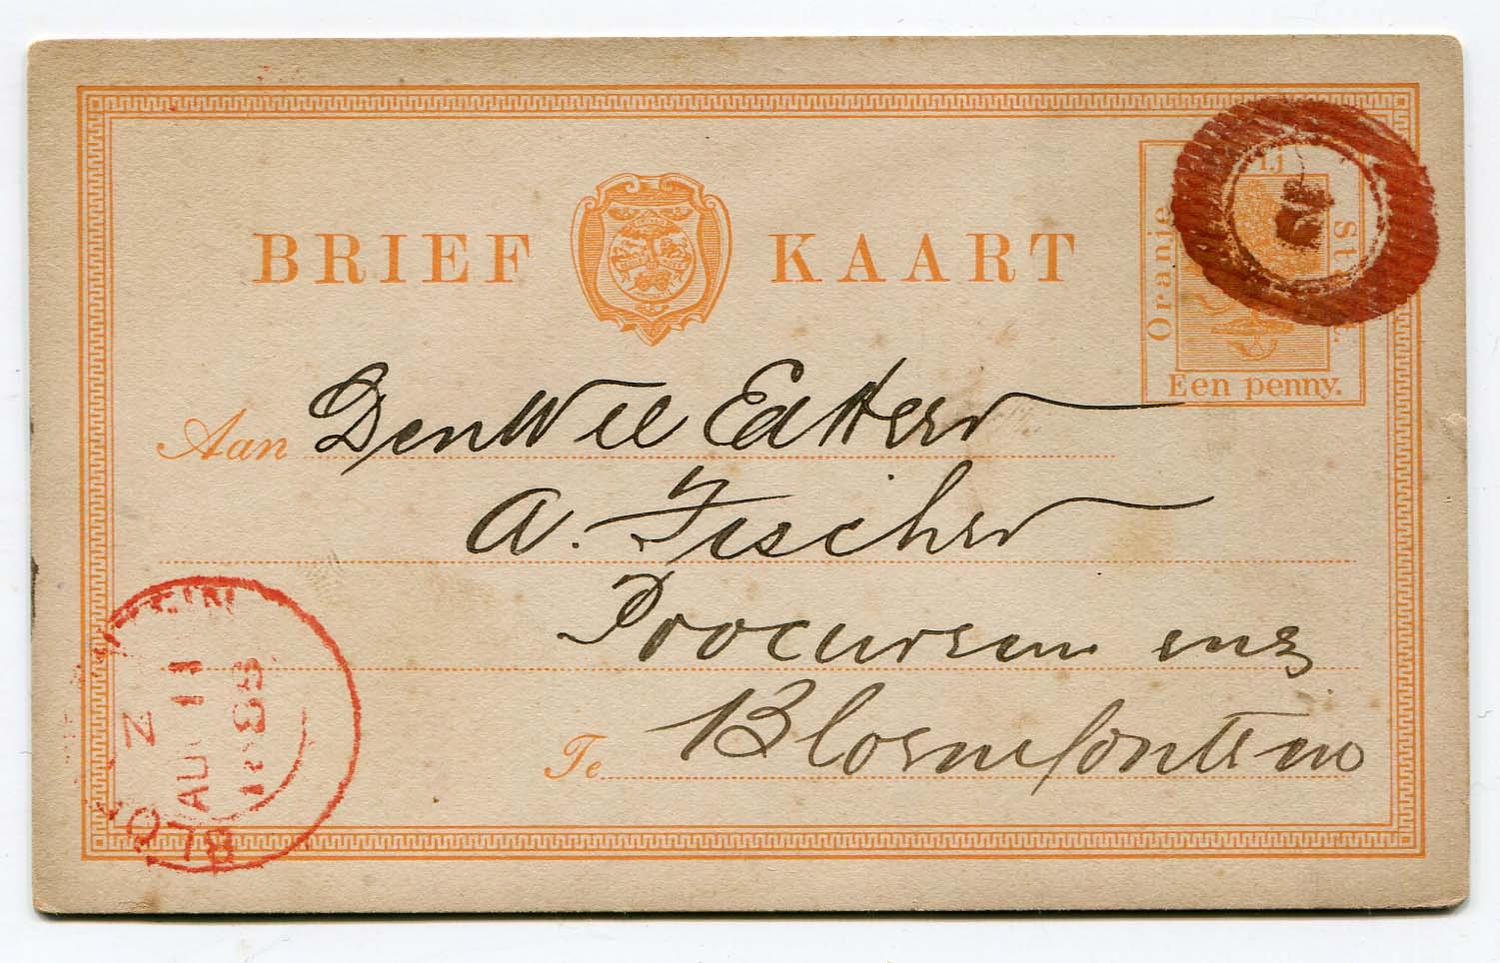 BRIEF KAART
Oranje Vrij Staat.
Een penny.
Aan Den Wel Ed Heer
A. Fischer
Procureur enz
Te Bloemfontein
BLO EIN
Z
AU 11
1888